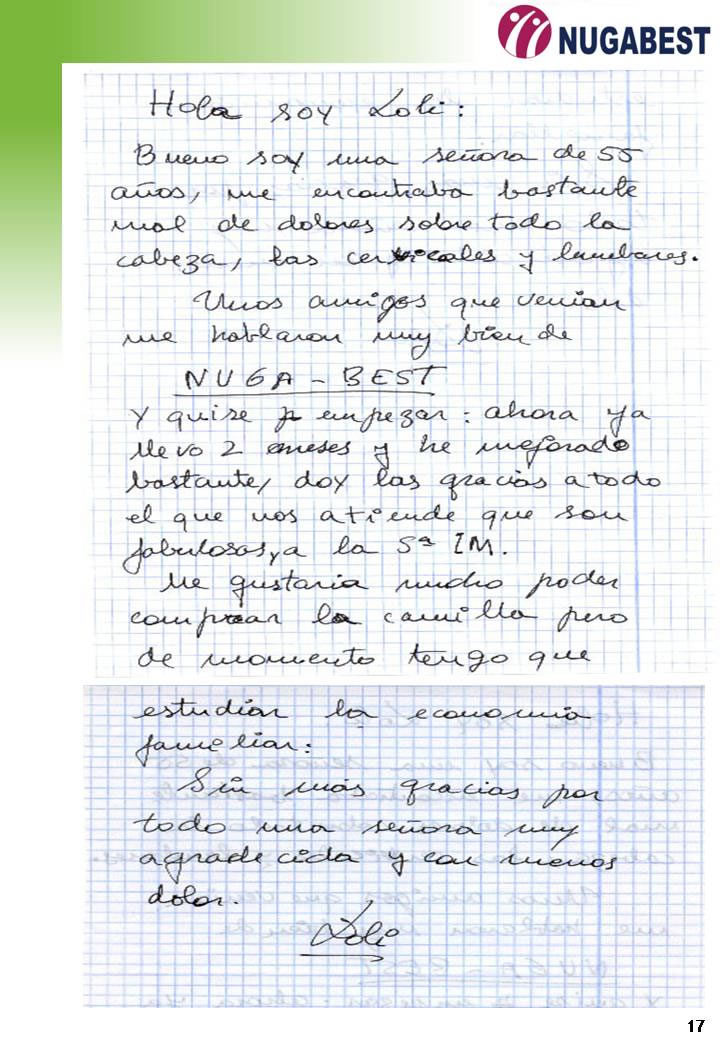 NUGABEST
Hola soy Loli:
Bueno soy una señora de 55
años, me encontraba bastante
mal de dolores sobre todo la
cabeza, las cervicales y lumbares.
Unos amigos que venian
me hablaron muy bien de
NUGA-BEST
Y quise empezar: ahora ya
llevo 2 meses y he mejorado
bastante, doy las gracias a todo
el que nos atiende que son
fabulosos, a la Sª IM.
Me gustaria mucho poder
comprar la camilla pero
de momento tengo que
estudiar la economia
familiar:
Sin más gracias por
todo una señora muy
agradecida y con menos
dolor.
Loli
17